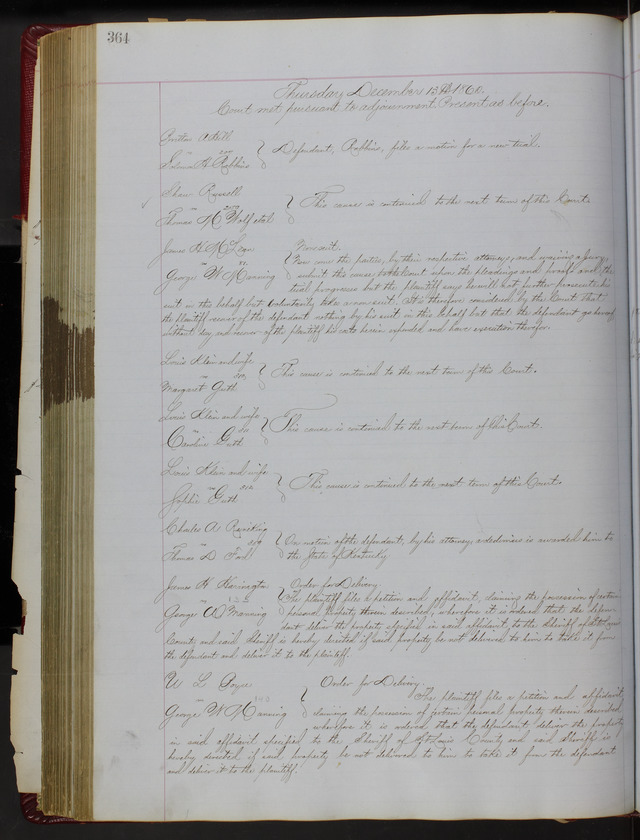 364
Thursday December 13th 1860.
Court met pursuant to adjournment Present as before.
vs
Edwin H Robbins
Defendant, Robbins, files a motion for a new trial.
Shaw Russell
vs
Thomas M Wolf et al
This cause is continued to the next term of this Court.
James H McLean
vs
George W Manning
Nonsuit.
Now come the parties, by their respective attorneys, and waiving a jury,
submit this cause to the Court upon the pleadings and proofs and the
trial progresses but the plaintiff says he will not further prosecute his
suit in this behalf but voluntarily takes a non suit. It is therefore considered by the Court That
the Plaintiff recover of the defendant nothing by his suit in this behalf but that the defendant go hereof
without day and recover of the plaintiff his costs herein expended and have execution therefor.
Louis Klein and wife
vs
Margaret Guth
This cause is continued to the next term of this Court.
Louis Klein and wife
vs
Caroline Guth
This cause is continued to the next term of this Court.
Louis Klein and wife
vs
Sophie Guth
This cause is continued to the next term of this Court.
Charles A
vs
Thomas D
On motion of the defendant, by his attorney, a dedimus is awarded him to
the State of Kentucky
James H Harrington
George W Manning
Order for Delivery
The plaintiff files a petition and affidavit, claiming the possession of certain
personal property therein described, wherefore it is ordered that the defen-
dant deliver the property specified in said affidavit, to the Sheriff of St Louis
County and said Sheriff is hereby directed if said property be not delivered to him to take it from
the defendant and deliver it to the plaintiff.
W L Joyce
George W Manning
Order for Delivery.
The plaintiff files a petition and affidavit
claiming the possession of certain personal property therein described
wherefore it is ordered that the defendant deliver the property
in said affidavit specified to the Sheriff of St Louis County and said Sheriff is
hereby directed if said property be not delivered to him to take it from the defendant
and deliver it to the plaintiff.